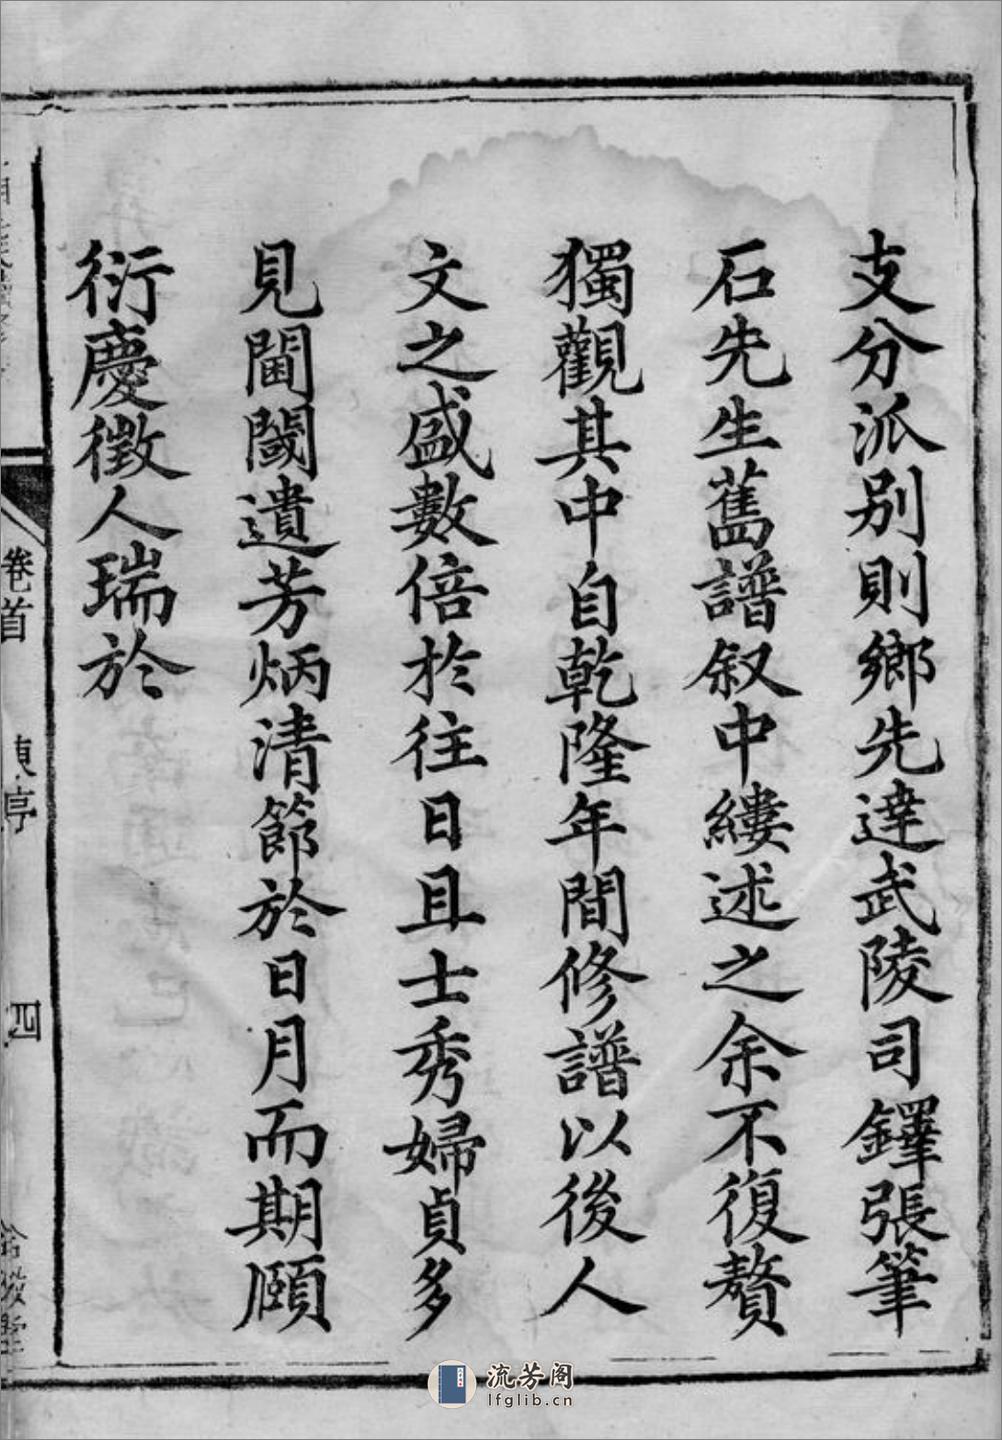 支分派别則鄉先達武陵司鐸張筆
石先生舊譜叙中縷述之余不復贅
獨觀其中自乾隆年間修譜以後人
文之盛數倍於往日且士秀婦貞多
見閫閾遺芳炳清節於日月而期頤
衍慶徵人瑞於
卷首
序
四
流芳阁
lfglib.cn